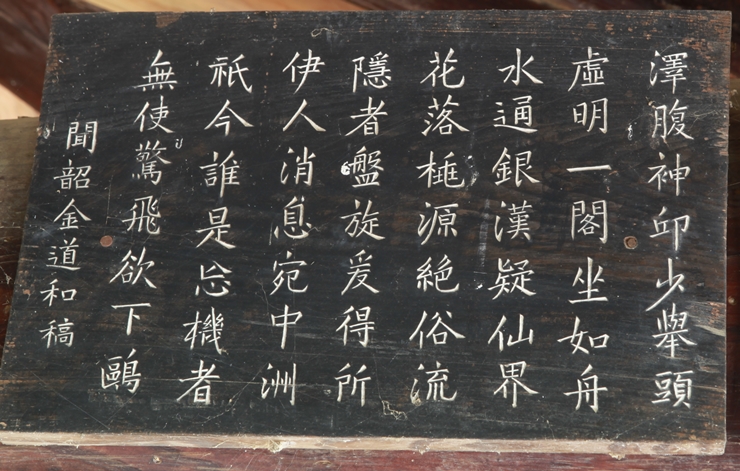 澤腹神卬少擧頭
虛明一閣坐如舟
水通銀漢疑仙界
花落桃源絶俗流
隱者盤旋爰得所
伊人消息宛中洲
祇今誰是忘機者
無使驚飛欲下鷗
聞韶金道和稿